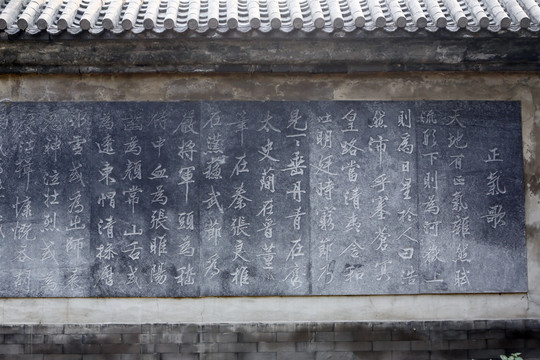 正氣歌
天地有正氣雜然賦
流形下則為河嶽上
則為日星於人曰浩
然沛乎塞蒼冥
皇路當清夷含和
吐明廷時窮節乃
見一一垂丹青在齊
太史簡在晉董狐
筆在秦張良椎
在漢蘇武節為
嚴將軍頭為嵇
侍中血為張睢陽
齒為顏常山舌或
為遼東帽清操厲
冰雪或為出師表
鬼神泣壯烈或為
渡江楫慷慨吞胡